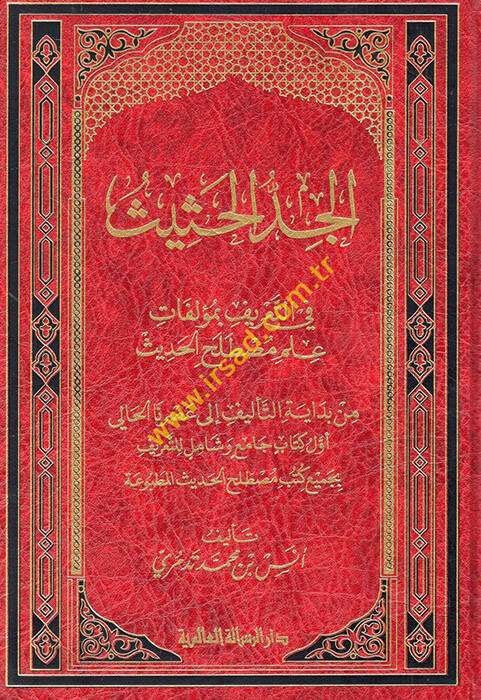 الجِدُّ الحَثِيثُ
في التَّعْرِيفِ بمُؤَلَّفَاتِ
عِلْمِ مُصْطَلَحِ الحَدِيثِ
مِنْ بِدَايَةِ التَّأْلِيفِ إِلَى عَصْرِنَا الحَالِي
أوَّل كِتَابٍ جَامِعٍ وَشَامِلٍ للتَّعْرِيفِ
بِجَمِيعِ كُتُبِ مُصْطَلَحِ الحَدِيثِ المَطْبُوعَة
تأليف
أنس بن محمد تدمري
دار الرسالة العالمية
www.irsad.com.tr